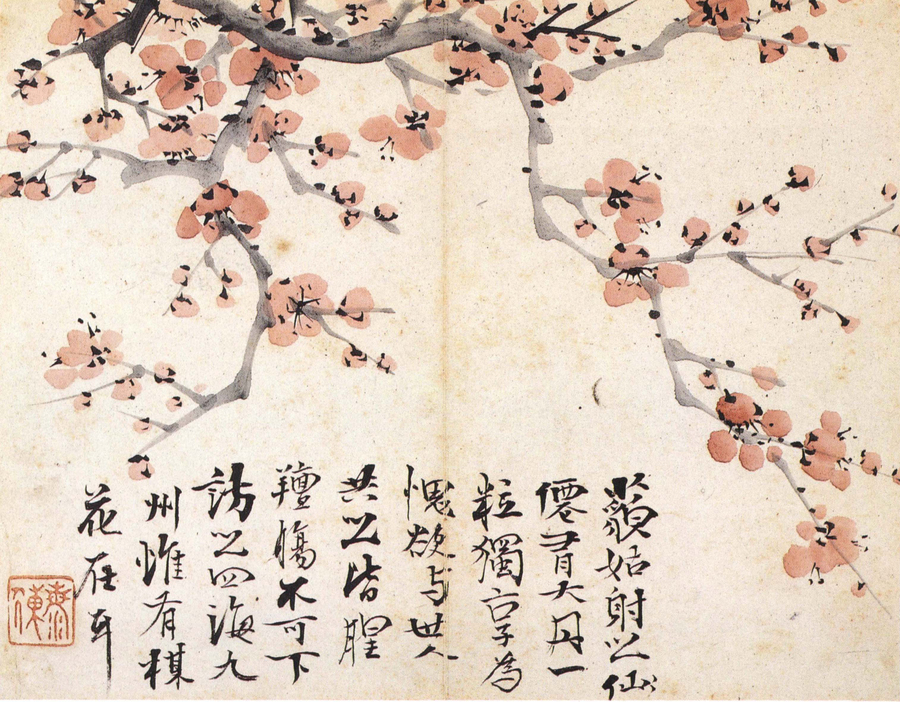 藐姑射之仙
僊大丹一
粒獨為
愧欲与世人
共之皆腥
羶腸不可下
訪之四海九
州惟有楳
花在耳